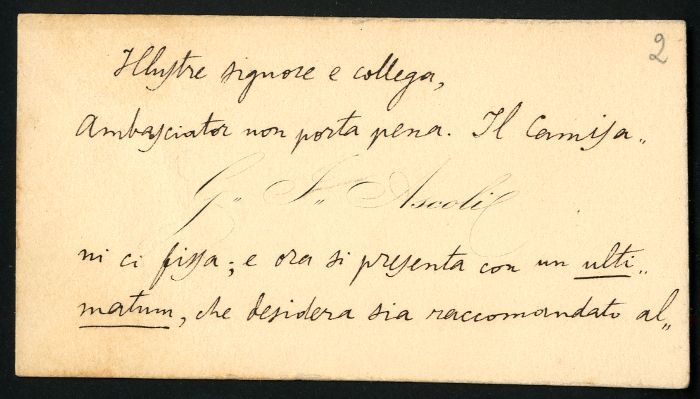 2
Illustre signore e collega,
Ambasciator non porta pena. Il Camisa„
G„ I„ Ascoli
ni ci fissa; e ora si presenta con un ulti„
matum, che desidera sia raccomandato al„